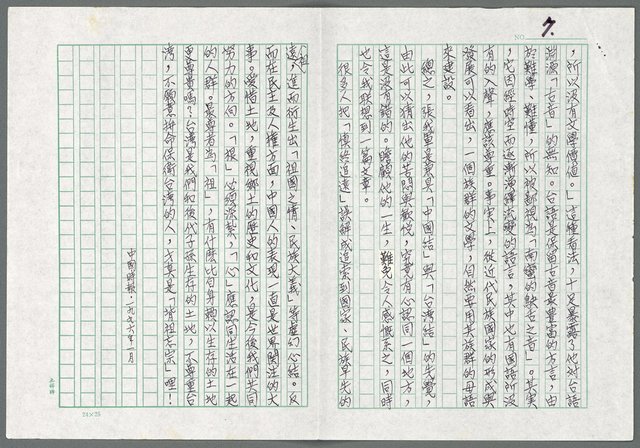 NO. 7.
，所以沒有文學價值。」這種看法，十足暴露了他對台語
淵源「古音」的無知。台語是保留古音最豐富的方言，由
於難學、難懂，所以被鄙視為「南蠻鴃舌之音」。其實
，它因經時空而逐漸演繹流變的語言，其中也有國語所沒
有的入聲，應該尊重。事實上，從近代民族國家的形成與
發展可以看出，一個族群的文學，自然要用其族群的母語
來建設。
總之，張我軍是兼具「中國結」與「台灣結」的先覺，
由此可以猜出他的苦悶與歡悅，究竟有心認同一個地方，
這是沒有錯的。瞻顧他的一生，難免令人感慨系之，同時
也令我聯想到一篇文章。
很多人把「慎終追遠」誤解成追索到國家、民族早先的
遠祖，進而衍生出「祖國之情、民族大義」等虛幻心結。反
而在民主及人權方面，中國人的表現一直是世界關注的大
事。愛惜土地，重視鄉土的歷史和文化，是今後我們共同
努力的方向。「根」必須深紮，「心」應認同生活在一起
的人群。最尊者為「祖」，有什麼比自身賴以生存的土地
更尊貴嗎？台灣是我們和後代子孫生存的土地，不尊重台
灣，不願意拼命保衛台灣的人，才真是「背祖忘宗」哩！
中國時報·一九九六年一月
24×25